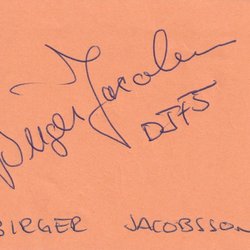 Birger Jacobsson
BIRGER JACOBSSON